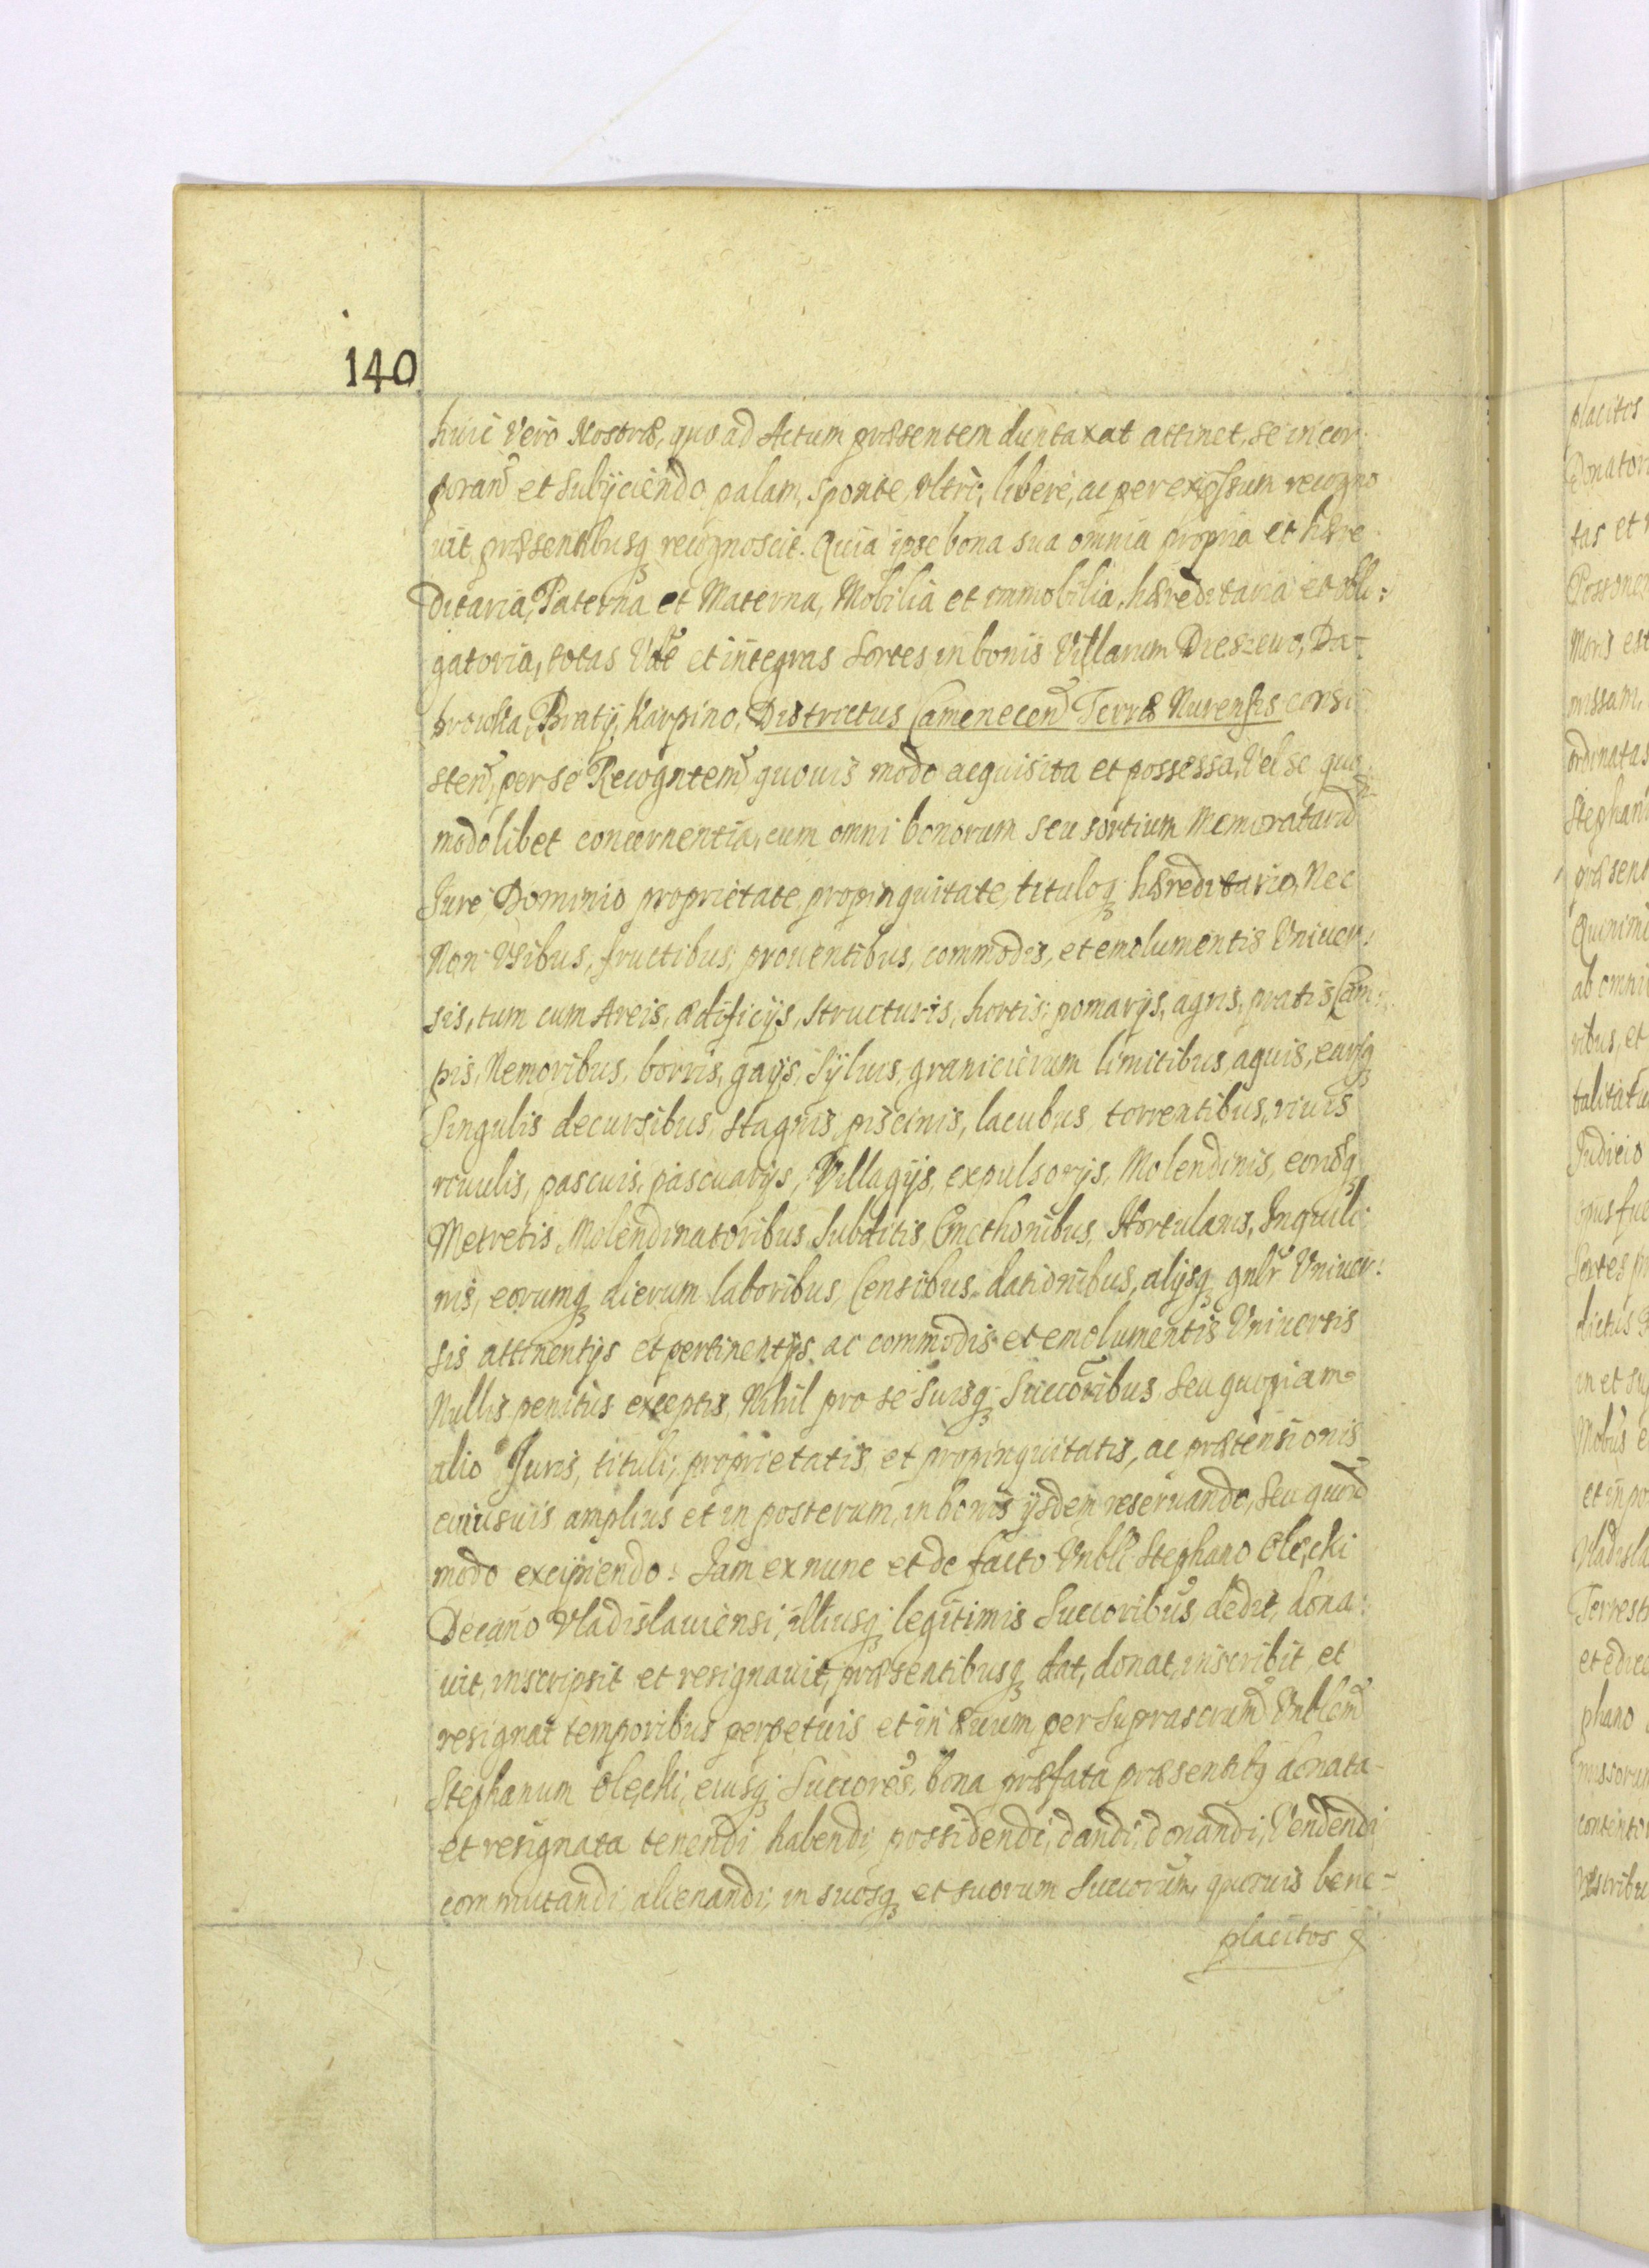 140
huic Vero Nostræ, quo ad Actum præsentem duntaxat attinet, se incor:
poran et subÿciendo, palam, sponte, Vltro, libere, ac per expssum recogno
uit præsentibusq recognoscit. Quia ipse bona sua omnia propria et hære
ditaria, Paterna et Materna, Mobilia et immobilia, hæreditaria et obli:
gatoria, totas et integras Sortes in bonis Villarum Dreszewo, Da-
browka, Bratÿ, Karpino, Districtus Camenecen Terræ Nurensis consi
sten, per se Recogntem quouis modo acquisita et possessa, Vel se quo
modolibet concernentia, cum omni bonorum seu sortium Memoratard
Jure, Dominio proprietate, propinquitate, tituloq hæreditario, Nec
Non Vsibus, fructibus, prouentibus, commodis, et emolumentis Vniuer:
sis, tum cum Areis, ædificÿs, structuris, hortis, pomarÿs, agris, pratis Cam:
pis, Nemoribus, borris, gaÿs, Sÿluis, granicierum limitibus, aquis, earq
Singulis decursibus, stagnis, piscinis, lacubus, torrentibus, riuis
riuulis, pascuis, pascuarÿs, Villagÿs, expulsorÿs, Molendinis, eorq
Metretis, Molendinatoribus Subditis Cmethonibus, Hortulanis, Inquili:
nis, eorumq dierum laboribus, Censibus, dationibus, alÿsq gnlr Vniuer:
sis attinentÿs et pertinentÿs, ac commodis et emolumentis Vniuersis
Nullis penitus exceptis, Nihil pro se Suisq Succoribus seu quopiam
alio Juris, tituli, proprietatis et propinquitatis, ac prætensionis
cuiusuis amplius et in posterum, in bonis ÿsdem reseruando, seu quouis
modo excipiendo. Jam ex nunc et de facto Vnbli Stephano Olęcki
Decano Vladislauiensi, illiusq legitimis Succoribus, dedit, dona:
uit, inscripsit et resignauit, præsentibusq dat, donat, inscribit, et
resignat temporibus perpetuis et in æuum, per suprascrum Vnblem
Stephanum Olęcki, eiusq Succores, bona præfata præsentibq donata
et resignata tenendi, habendi, possidendi, dandi, donandi, Vendendi
commutandi, alienandi, in suosq et suorum Succorum, quouis bene-
placitos
placitos
Donator
tas et
Moris est
missam,
ordinatas
Stephani
præsent
Quinimo
ab omni
ribus, et
Judicio
Sortes
dictus
in et su
Nobus
et in po
Vladisla
Terrest
et edice
phano
missorum